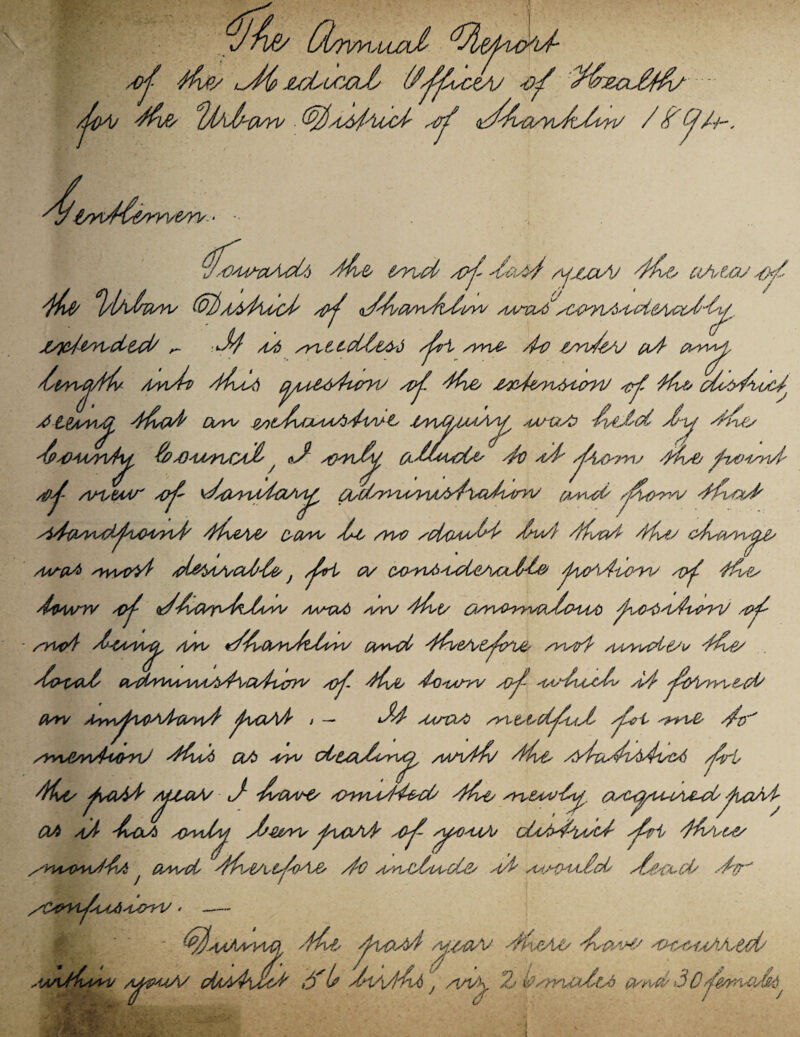 The Annual Report
of the Medical Officer of Health
for the Urban District of Shanklin 1894.
Gentlemen.
Towards the end of last year the area of
the Urban District of Shanklin was considerably
extended - It is needless for me to enter at any
length into this question of the extension of the district,
seeing that an exhaustive enquiry was held by the
County Council, I only allude to it from the point
of view of Sanitary administration and from that
standpoint there can be no doubt but that the change
was most desirable, for a considerable portion of the
town of Shanklin was in the anomalous position of
not being in Shanklin and therefore not under the
local administration of the town of which it formed
an important part, - It was needful for me to
mention this as in dealing with the statistics for
the past year I have omitted the newly acquired part,
as it has only been part of your district for three
months, and therefore to include it would lead to
confusion. —
During the past year there have occurred
within your district 56 births, viz, 26 males and 30 females,